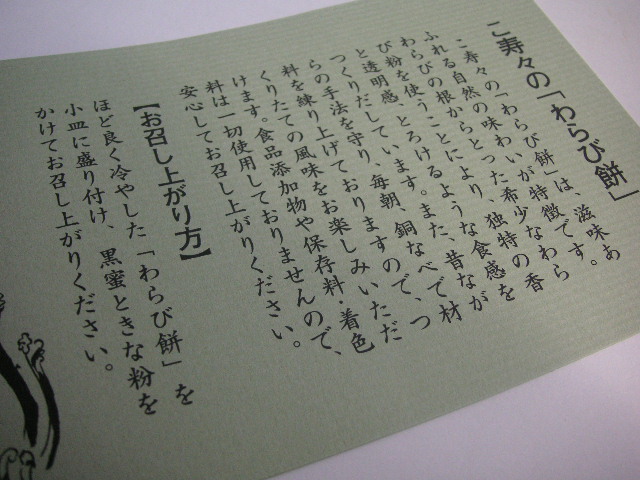 こ寿々の「わらび餅」
こ寿々の「わらび餅」は、滋味あ
ふれる自然の味わいが特徴です。
わらびの根からとった、希少なわら
び粉を使うことにより、独特の香
と透明感、とろけるような食感を
つくりだしています。また、昔なが
らの手法を守り、毎朝、銅なべで材
料を練り上げておりますので、つ
くりたての風味をお楽しみいただ
けます。食品添加物や保存料・着色
料は一切使用しておりませんので、
安心してお召し上がりください。
【お召し上がり方】
ほど良く冷やした「わらび餅」を
小皿に盛り付け、黒蜜ときな粉を
かけてお召し上がりください。